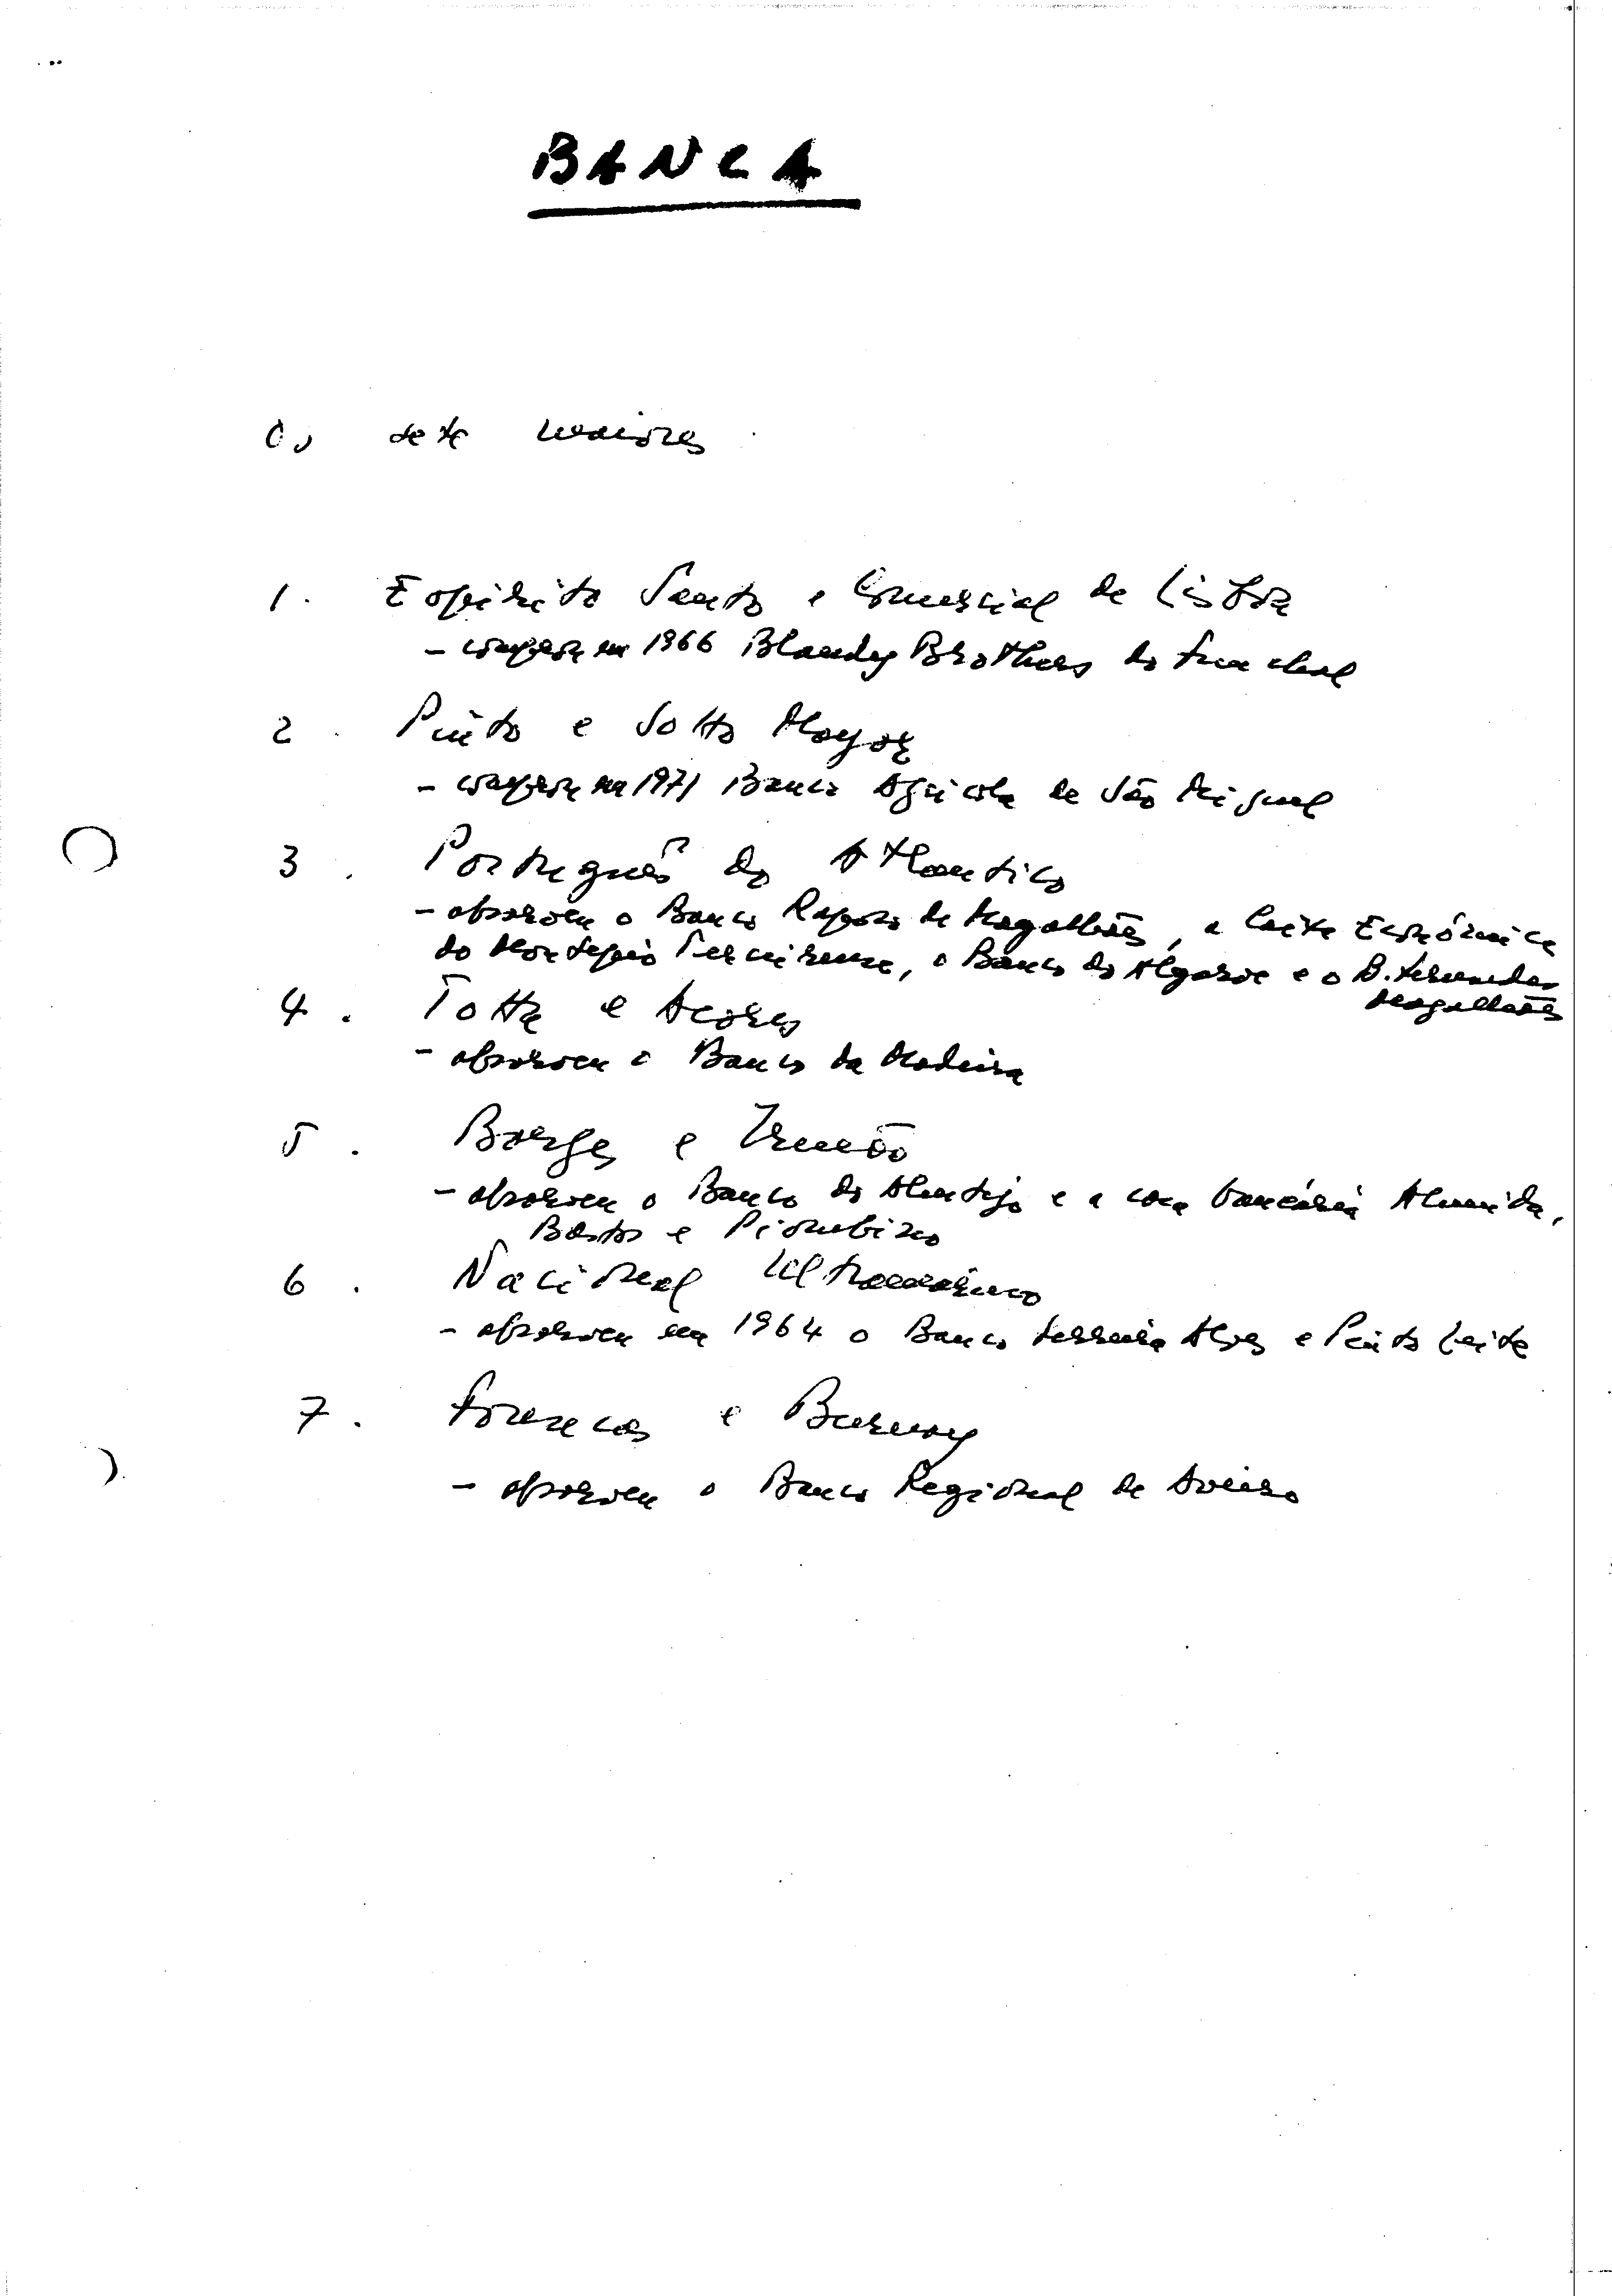 BANCA
Os sete maiores
1. Espirito Santo e Comercial de Lisboa
- comprou em 1966 Blandy Brothers do Funchal
2. Pinto e Sotto Mayor
- comprou em 1971 Banco Agricola de São Miguel
3. Português do Atlantico
- absorveu o Banco Raposo de Magalhães, a Caixa Económica
do Montepio Terceirense, o Banco do Algarve e o B. Fernandes
Magalhães
4. Totta e Açores
- absorveu o Banco da Madeira
5. Borges e Irmão
- absorveu o Banco do Alentejo e a casa bancária Almeida,
Basto e Piombino
6. Nacional Ultramarino
- absorveu em 1964 o Banco Ferreira Alves e Pinto Leite
7. Fonsecas e Burnay
- absorveu o Banco Regional de Aveiro